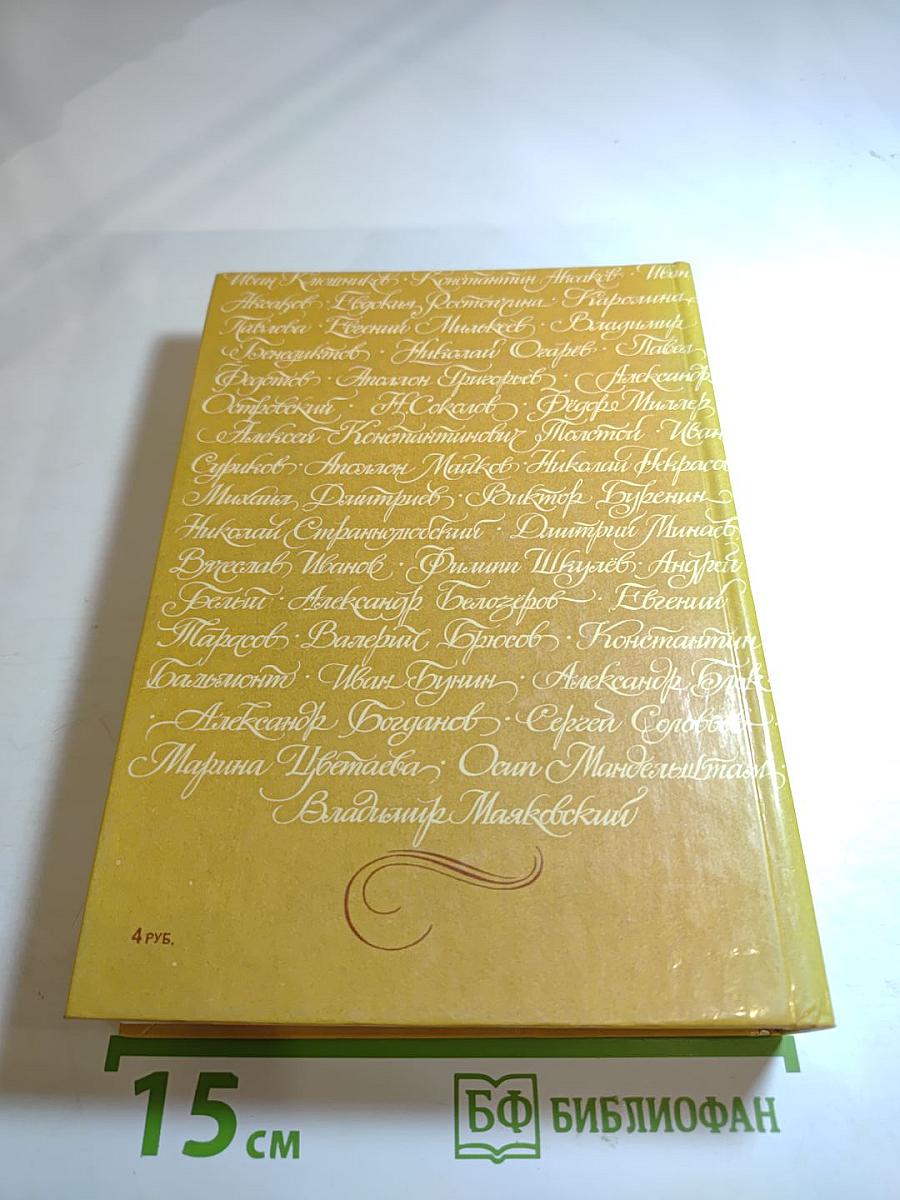 Иван Клюшников · Константин Аксаков · Иван
Аксаков · Евдокия Ростопчина · Каролина
Павлова · Евгений Милькеев · Владимир
Бенедиктов · Николай Огарёв · Павел
Федотов · Аполлон Григорьев · Александр
Островский · Н. Соколов · Фёдор Миллер
Алексей Константинович Толстой · Иван
Суриков · Аполлон Майков · Николай Некрасов
Михаил Дмитриев · Виктор Буренин
Николай Страннолюбский · Дмитрий Минаев
Вячеслав Иванов · Филипп Шкулёв · Андрей
Белый · Александр Белозёров · Евгений
Тарасов · Валерий Брюсов · Константин
Бальмонт · Иван Бунин · Александр Блок
· Александр Богданов · Сергей Соловьёв
Марина Цветаева · Осип Мандельштам ·
Владимир Маяковский
4 РУБ.
15 СМ
БФ БИБЛИОФАН